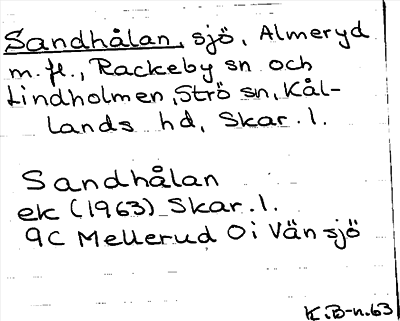 Sandhålan, sjö, Almeryd
m.fl., Rackeby sn och
Lindholmen, Strö sn, Kål-
lands hd, Skar. l.
Sandhålan
ek (1963) Skar. l.
9C Mellerud 0i Vän sjö
K.B-n.63